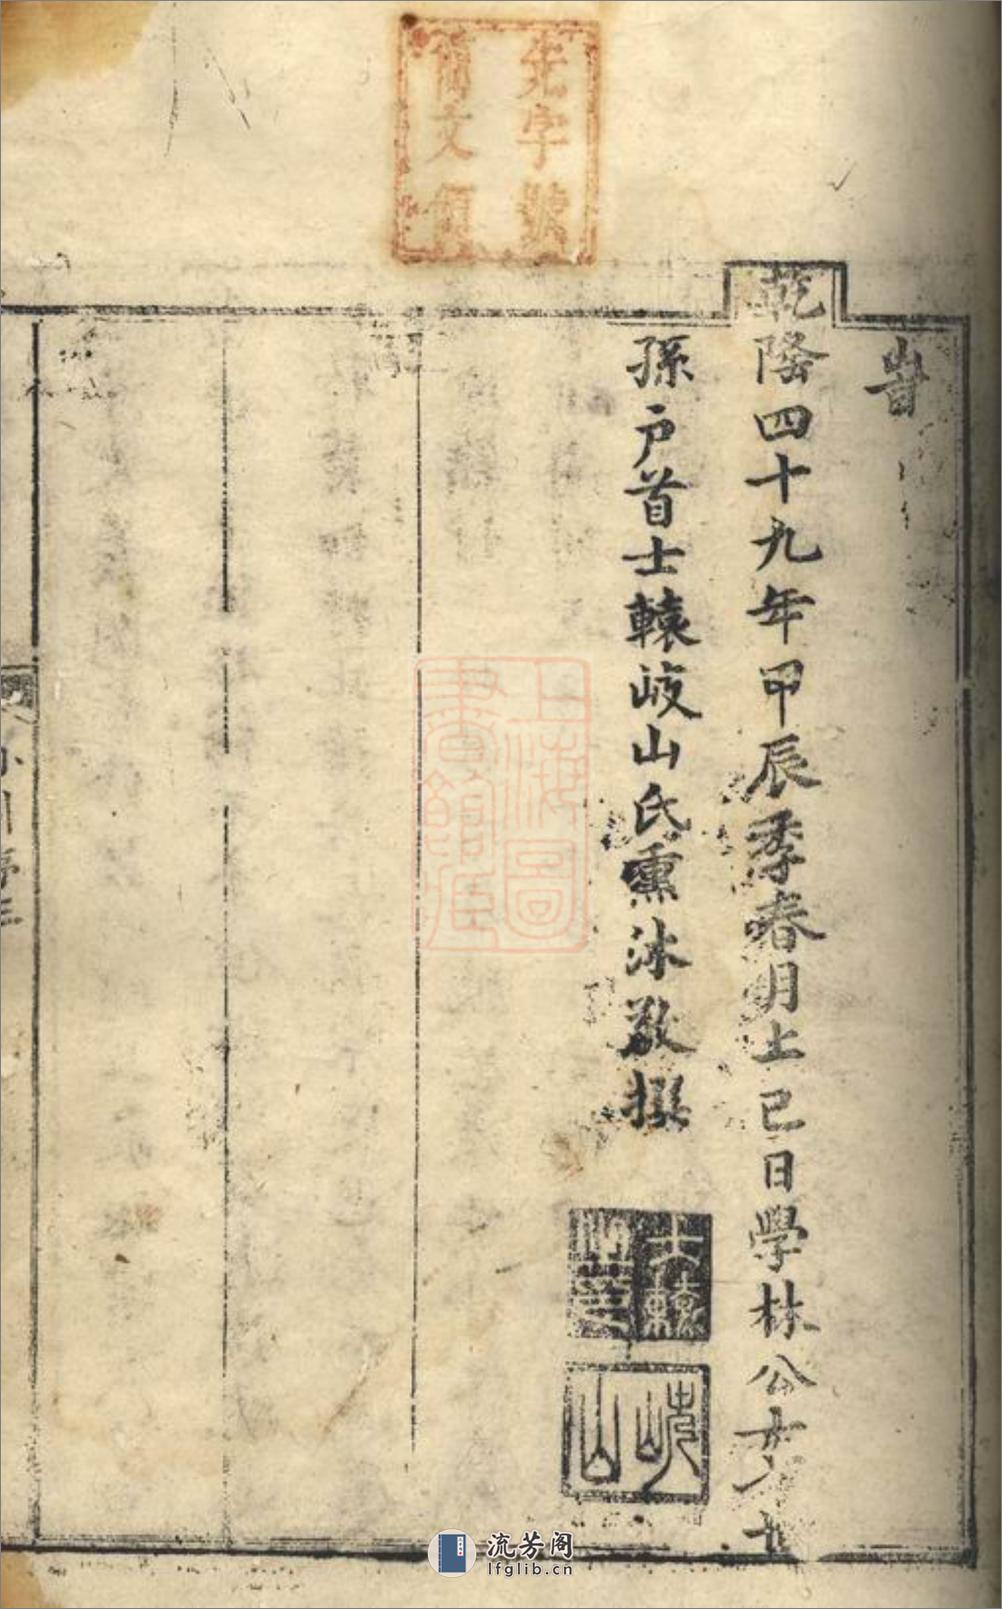 旹
乾隆四十九年甲辰季春月上巳日學林公十八世
孫戶首士轅岐山氏熏沐敬撰
士轅
岐山
先字號
簡文領
上海圖
書館藏
流芳阁
lfglib.cn